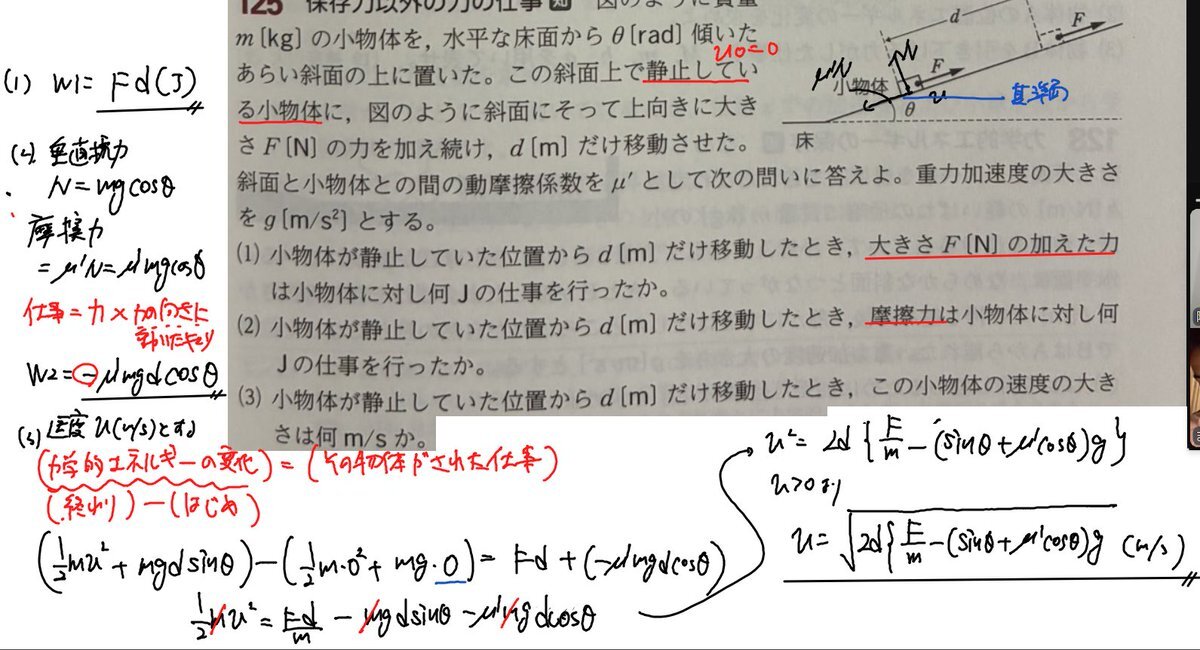 125 保存力以外の力の仕事 知 図のように質量
m〔kg〕の小物体を,水平な床面からθ〔rad〕傾いた
u0=0
あらい斜面の上に置いた。この斜面上で静止してい
る小物体に,図のように斜面にそって上向きに大き
さF〔N〕の力を加え続け,d〔m〕だけ移動させた。
斜面と小物体との間の動摩擦係数をμ'として次の問いに答えよ。重力加速度の大きさ
をg〔m/s²〕とする。
(1) 小物体が静止していた位置からd〔m〕だけ移動したとき,大きさF〔N〕の加えた力
は小物体に対し何Jの仕事を行ったか。
(2) 小物体が静止していた位置からd〔m〕だけ移動したとき,摩擦力は小物体に対し何
Jの仕事を行ったか。
(3) 小物体が静止していた位置からd〔m〕だけ移動したとき,この小物体の速度の大き
さは何m/sか。
d
F
N
μ'N
小物体
F
u
基準面
θ
床
(1) W1= Fd(J)
(2) 垂直抗力
N=mgcosθ
摩擦力
=μ'N=μ'mgcosθ
仕事=力×力の向きに
動いたキョリ
W2=-μ'mgdcosθ
(3) 速度u(m/s)とする
(力学的エネルギーの変化)=(その物体がされた仕事)
(終わり)-(はじめ)
(1/2mu²+mgdsinθ)-(1/2m・0²+mg・0)=Fd+(-μ'mgdcosθ)
1/2mu²=Fd/m-mgdsinθ-μ'mgdcosθ
u²=2d{F/m-(sinθ+μ'cosθ)g}
u>0より
u=√2d{F/m-(sinθ+μ'cosθ)g (m/s)